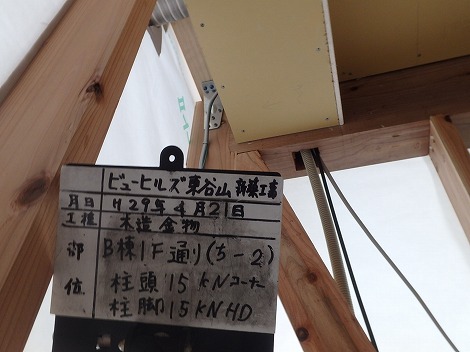 ビューヒルズ東谷山新築工事
月日 H29年4月21日
工種 木造金物
部位 B棟1F通り(ち-2)
柱頭15KNコーナー
柱脚15KNHD